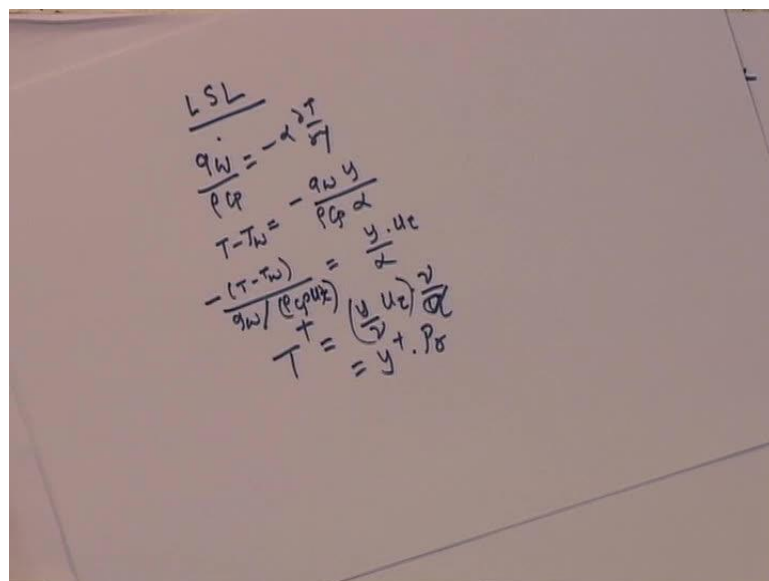 LSL
q̇w/ρCp = -α ∂T/∂y
T-Tw = - qw y/ρCp α
- (T-Tw)/qw/(ρCpuτ) = y.uτ/α
T⁺ = (y/ν uτ).ν/α
= y⁺.Pr